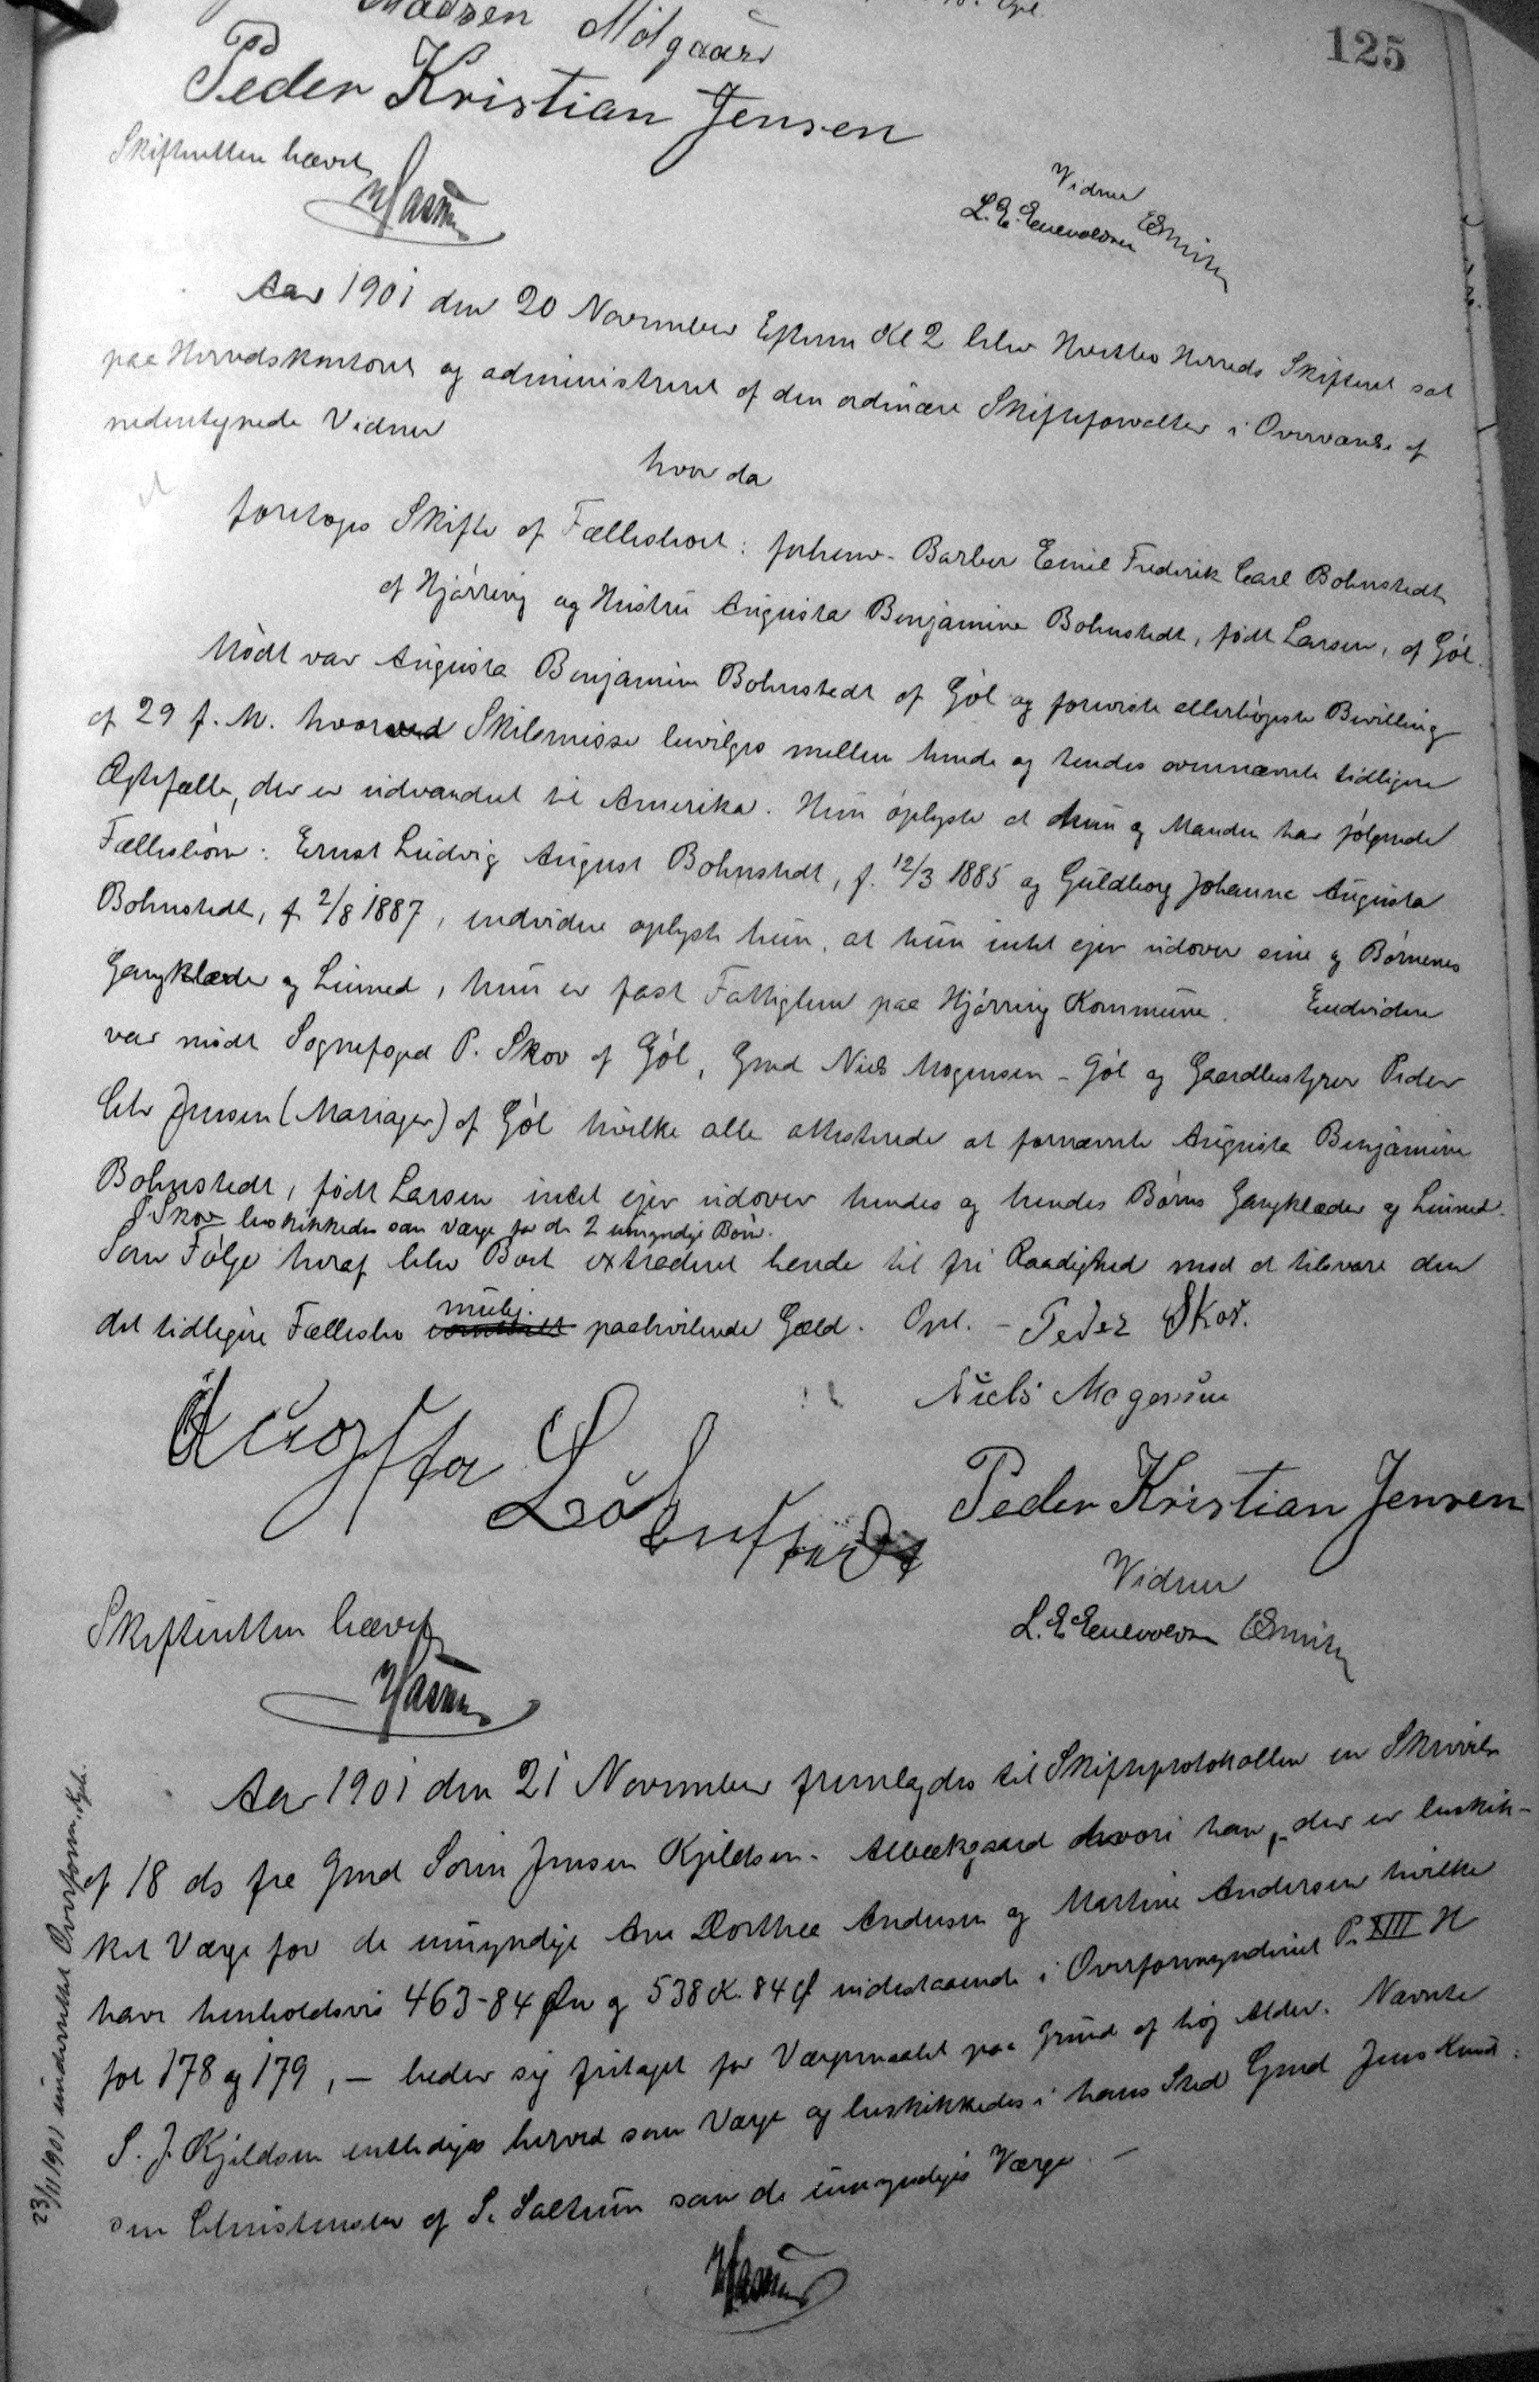 125
Madsen Mølgaard
Peder Kristian Jensen
Skifteretten hævet
Vidner
L. E. Enevoldsen
Aar 1901 den 20 November Efterm Kl 2 blev Hvetbo Herreds Skifteret sat
paa Herredskontoret og administreret af den ordinære Skifteforvalter i Overværelse af
undertegnede Vidner
hvor da
foretoges Skifte af Fællesboet: forhenv. Barber Emil Frederik Carl Bohnstedt
af Hjørring og Hustru Augusta Benjamine Bohnstedt, født Larsen, af Gøl.
Mødt var Augusta Benjamine Bohnstedt af Gøl og foreviste allerhøjeste Bevilling
af 29 f. M. hvorved Skilsmisse bevilges mellem hende og hendes ovennævnte tidligere
Ægtefælle, der er udvandret til Amerika. Hun oplyste at hun og Manden har følgende
Fællesbørn: Ernst Ludvig August Bohnstedt, f. 12/3 1885 og Guldborg Johanne Augusta
Bohnstedt, f. 2/8 1887, endvidere oplyste hun, at hun intet ejer udover sine og Børnenes
Gangklæder og Linned, hun er fast Fattiglem paa Hjørring Kommune. Endvidere
var mødt Sognefoged P. Skov af Gøl, Gmd Niels Mogensen - Gøl og Gaardbestyrer Peder
Chr Jensen (Mariager) af Gøl hvilke alle attesterede at fornævnte Augusta Benjamine
Bohnstedt, født Larsen intet ejer udover hendes og hendes Børns Gangklæder og Linned.
P. Skov beskikkedes som Værge for de 2 umyndige Børn.
Som Følge heraf blev Boet extraderet hende til fri Raadighed mod at tilsvare den
det tidligere Fællesbo mulig. paahvilende Gæld. Opl. - Peder Skov.
Niels Mogensen
Augusta Bohnstedt
Peder Kristian Jensen
Vidner
L. E. Enevoldsen
Skifteretten hævet
Aar 1901 den 21 November fremlagdes til Skifteprotokollen en Skrivelse
af 18 ds fra Gmd Søren Jensen Kjeldsen - Albækgaard hvori han, - der er beskik-
ket Værge for de umyndige Ane Dorthea Andersen og Martine Andersen hvilke
have henholdsvis 463-84 Øre og 538 K. 84 Ø indestaaende i Overformynderiet P. XIII H
fol 178 og 179, - beder sig fritaget for Værgemaalet paa Grund af høj Alder. Nævnte
S. J. Kjeldsen entlediges herved som Værge og beskikkedes i hans Sted Gmd Jens Knud-
sen Christensen af S. Saltum som de umyndiges Værge. -
23/11 1901 underrettet Overform.